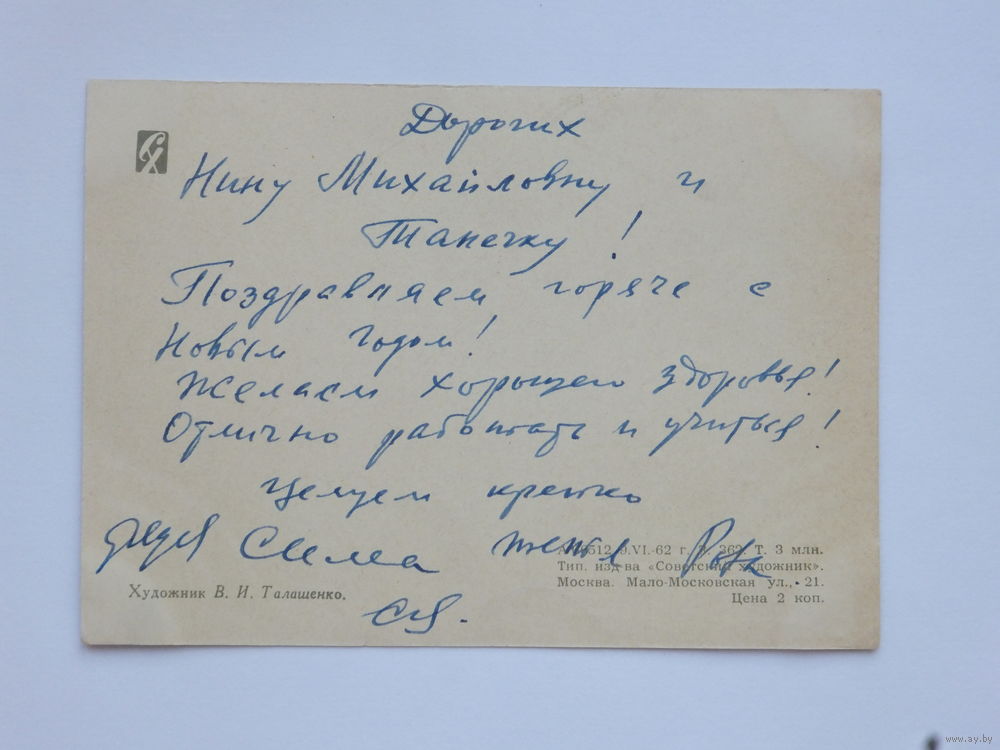 Дорогих
Нину Михайловну и
Танечку!
Поздравляем горяче с
Новым Годом!
Желаем хорошего здоровья!
Отлично работать и учиться!
Целуем крепко
дядя Сима тётя
Художник В. И. Талашенко.
9.VI.-62 г. З. 362. Т. 3 млн.
Тип. изд-ва «Советский художник».
Москва. Мало-Московская ул., 21.
Цена 2 коп.
www.ay.by